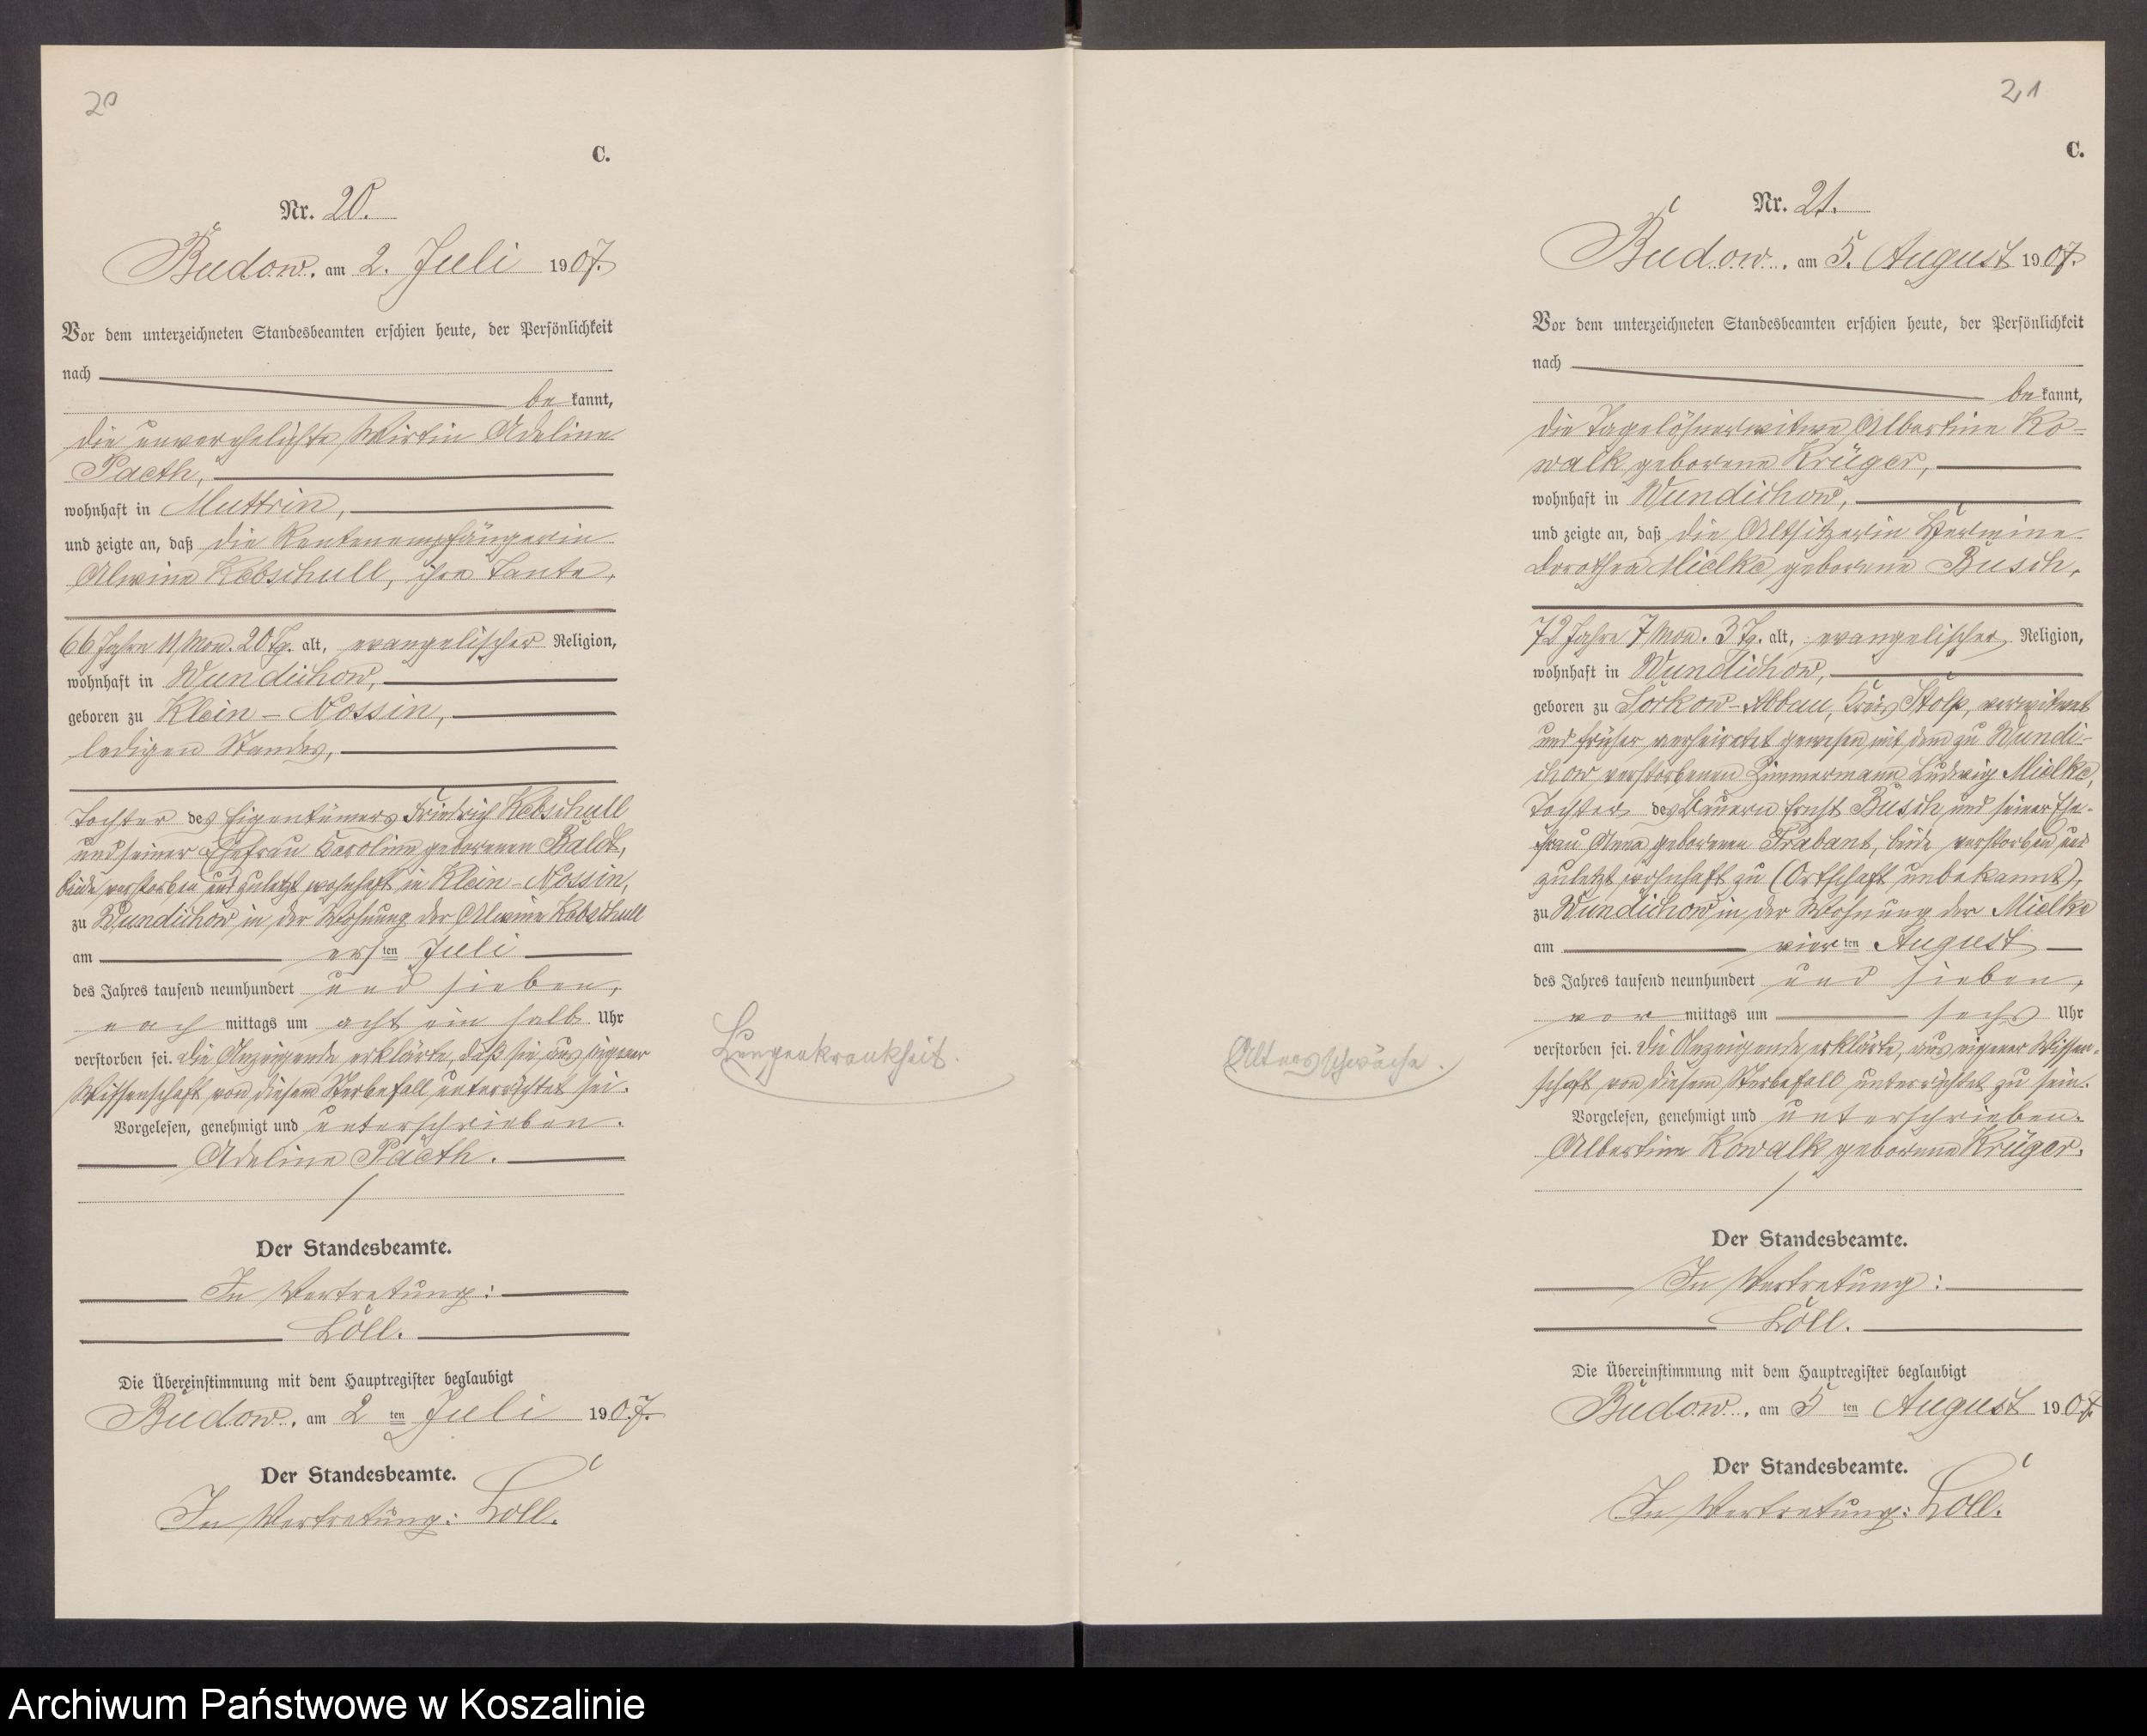 20
C.
Nr. 20.
Budow, am 2. Juli 1907.
Vor dem unterzeichneten Standesbeamten erschien heute, der Persönlichkeit
nach
be kannt,
die unverehelichte Wirtin Adeline
Paeth,
wohnhaft in Muttrin,
und zeigte an, daß die Rentenempfängerin
Alwine Kebschull, ihre Tante,
66 Jahre 11 Mon. 20 Tg. alt, evangelischer Religion,
wohnhaft in Wundichow,
geboren zu Klein-Nossin,
ledigen Standes,
Tochter des Eigentümers Friedrich Kebschull
und seiner Ehefrau Karoline geborenen Baldt,
beide verstorben und zuletzt wohnhaft in Klein-Nossin,
zu Wundichow in der Wohnung der Alwine Kebschull
am ersten Juli
des Jahres tausend neunhundert und sieben,
nach mittags um acht ein halb Uhr
verstorben sei. Die Anzeigende erklärte, daß sie aus eigener
Wissenschaft von diesem Sterbefall unterrichtet sei.
Vorgelesen, genehmigt und unterschrieben.
Adeline Paeth.
Der Standesbeamte.
In Vertretung:
Löll.
Die Übereinstimmung mit dem Hauptregister beglaubigt
Budow, am 2 ten Juli 1907.
Der Standesbeamte.
In Vertretung: Loll.
Lungenkrankheit.
21
C.
Nr. 21.
Budow, am 5. August 1907.
Vor dem unterzeichneten Standesbeamten erschien heute, der Persönlichkeit
nach
be kannt,
die Tagelöhnerwitwe Albertine Ko-
walk geborene Krüger,
wohnhaft in Wundichow,
und zeigte an, daß die Altsitzerin Hermine
Dorothea Mielke geborene Busch,
72 Jahre 7 Mon. 3 Tg. alt, evangelischer Religion,
wohnhaft in Wundichow,
geboren zu Torkow-Abbau, Kreis Stolp, verwitwet
und früher verheiratet gewesen mit dem zu Wundi-
chow verstorbenen Zimmermann Ludwig Mielke,
Tochter des Bauern Ernst Busch und seiner Ehe-
frau Anna geborenen Trabant, beide verstorben und
zuletzt wohnhaft zu (Ortschaft unbekannt),
zu Wundichow in der Wohnung der Mielke
am vierten August
des Jahres tausend neunhundert und sieben,
vor mittags um sechs Uhr
verstorben sei. Die Anzeigende erklärte, aus eigener Wissen-
schaft von diesem Sterbefall unterrichtet zu sein.
Vorgelesen, genehmigt und unterschrieben.
Albertine Kowalk geborene Krüger.
Der Standesbeamte.
In Vertretung:
Löll.
Die Übereinstimmung mit dem Hauptregister beglaubigt
Budow, am 5 ten August 1907.
Der Standesbeamte.
In Vertretung: Loll.
Altersschwäche.
Archiwum Państwowe w Koszalinie